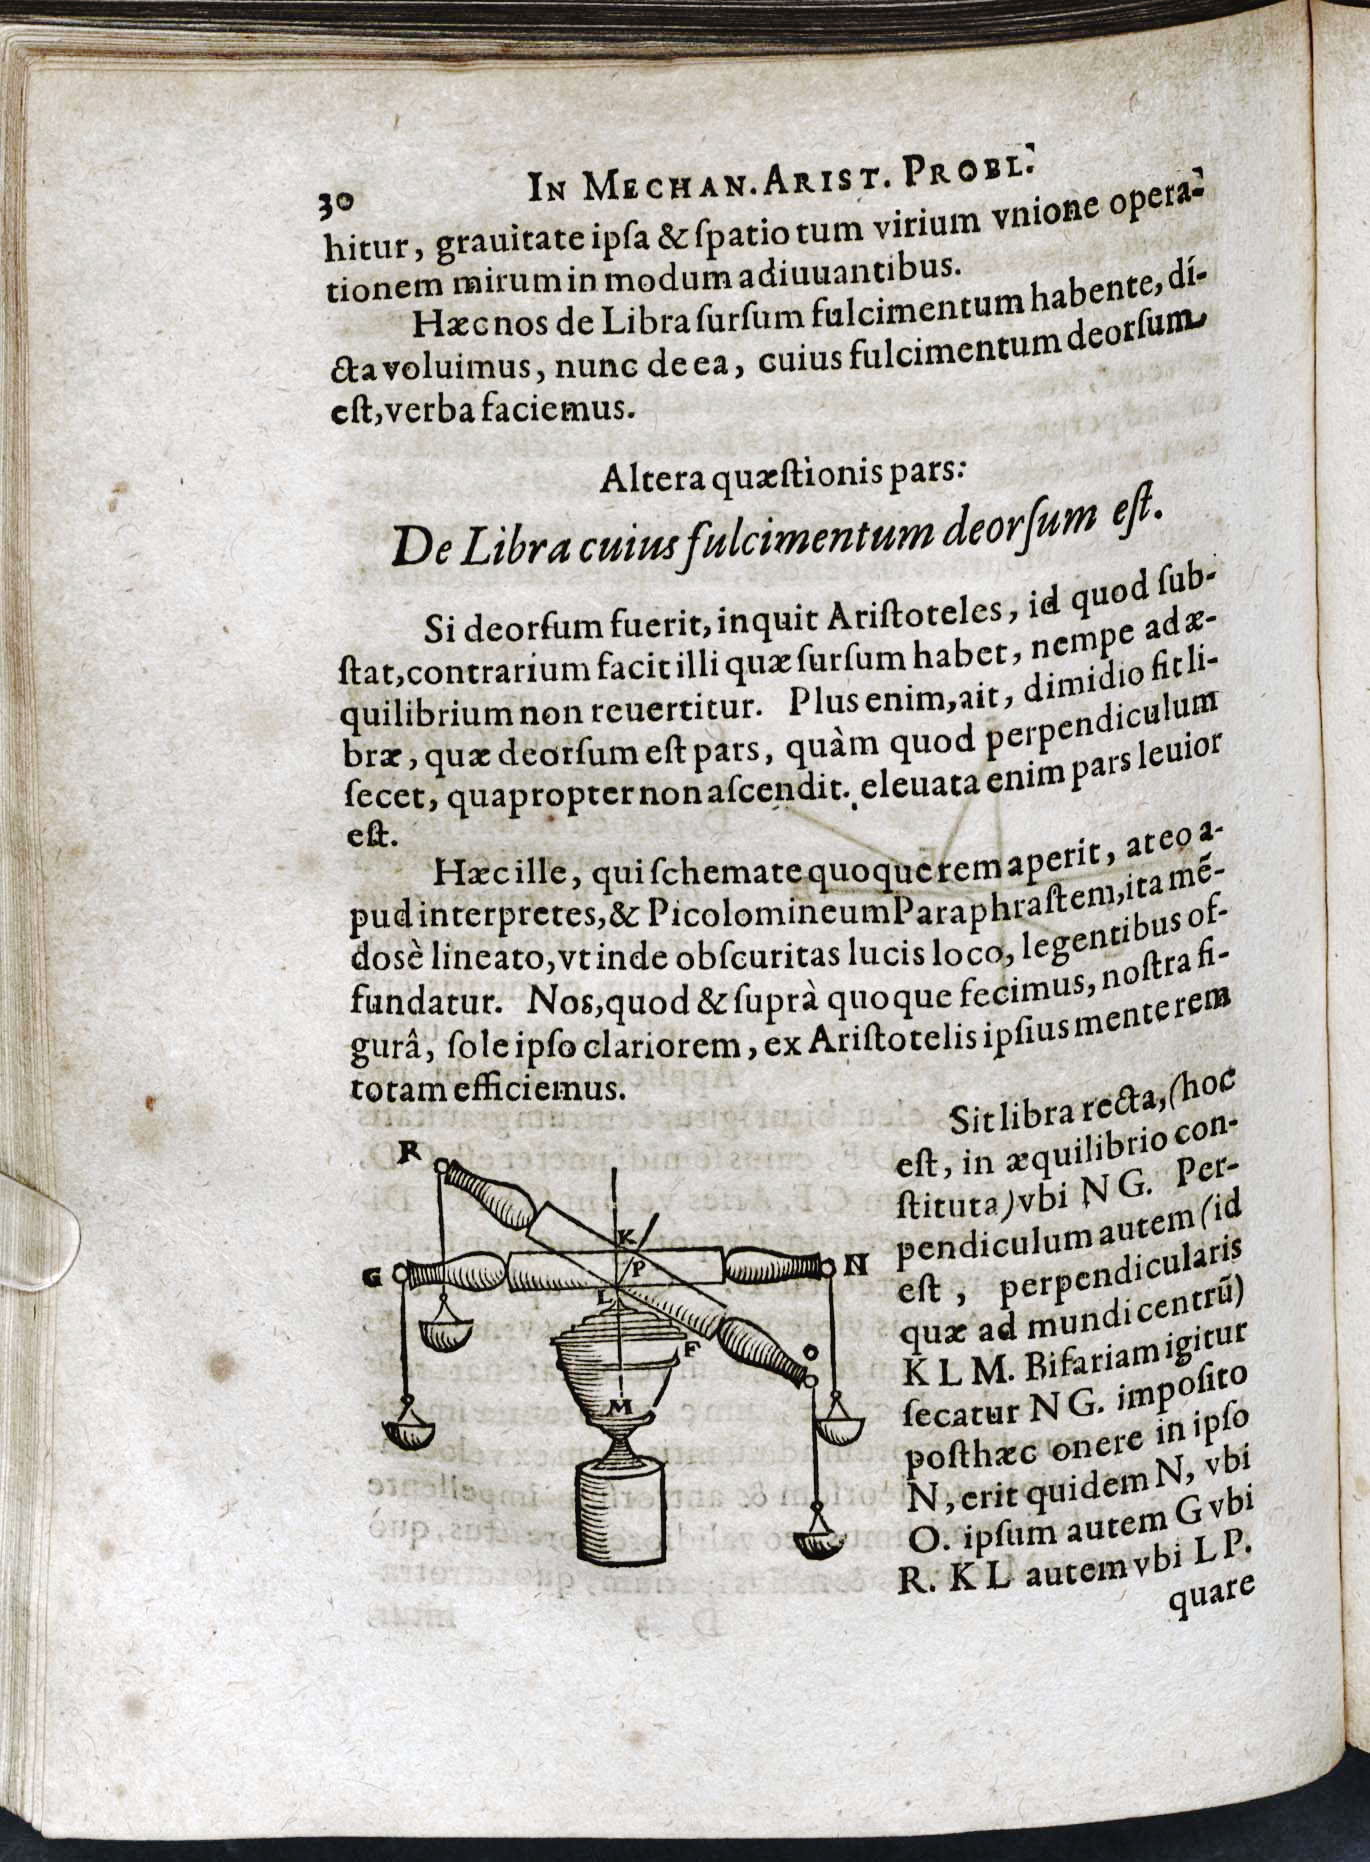 30 IN MECHAN. ARIST. PROBL.
hitur, grauitate ipſa & ſpatio tum virium vnione opera-
tionem mirum in modum adiuuantibus.
Hæc nos de Libra ſurſum fulcimentum habente, di-
cta voluimus, nunc de ea, cuius fulcimentum deorſum
eſt, verba faciemus.
Altera quæſtionis pars:
De Libra cuius fulcimentum deorſum eſt.
Si deorſum fuerit, inquit Ariſtoteles, id quod ſub-
ſtat, contrarium facit illi quæ ſurſum habet, nempe ad æ-
quilibrium non reuertitur. Plus enim, ait, dimidio fit li-
bræ, quæ deorſum eſt pars, quàm quod perpendiculum
ſecet, quapropter non aſcendit. eleuata enim pars leuior
eſt.
Hæc ille, qui ſchemate quoque rem aperit, at eo a-
pud interpretes, & Picolomineum Paraphraſtem, ita mē-
dosè lineato, vt inde obſcuritas lucis loco, legentibus of-
fundatur. Nos, quod & ſuprà quoque fecimus, noſtra fi-
gurâ, ſole ipſo clariorem, ex Ariſtotelis ipſius mente rem
totam efficiemus.
Sit libra recta, (hoc
eſt, in æquilibrio con-
ſtituta) vbi N G. Per-
pendiculum autem (id
eſt, perpendicularis
quæ ad mundi centrū)
K L M. Bifariam igitur
ſecatur N G. impoſito
poſthæc onere in ipſo
N, erit quidem N, vbi
O. ipſum autem G vbi
R. K L autem vbi L P.
quare
R
K
G
P
N
L
F
O
M